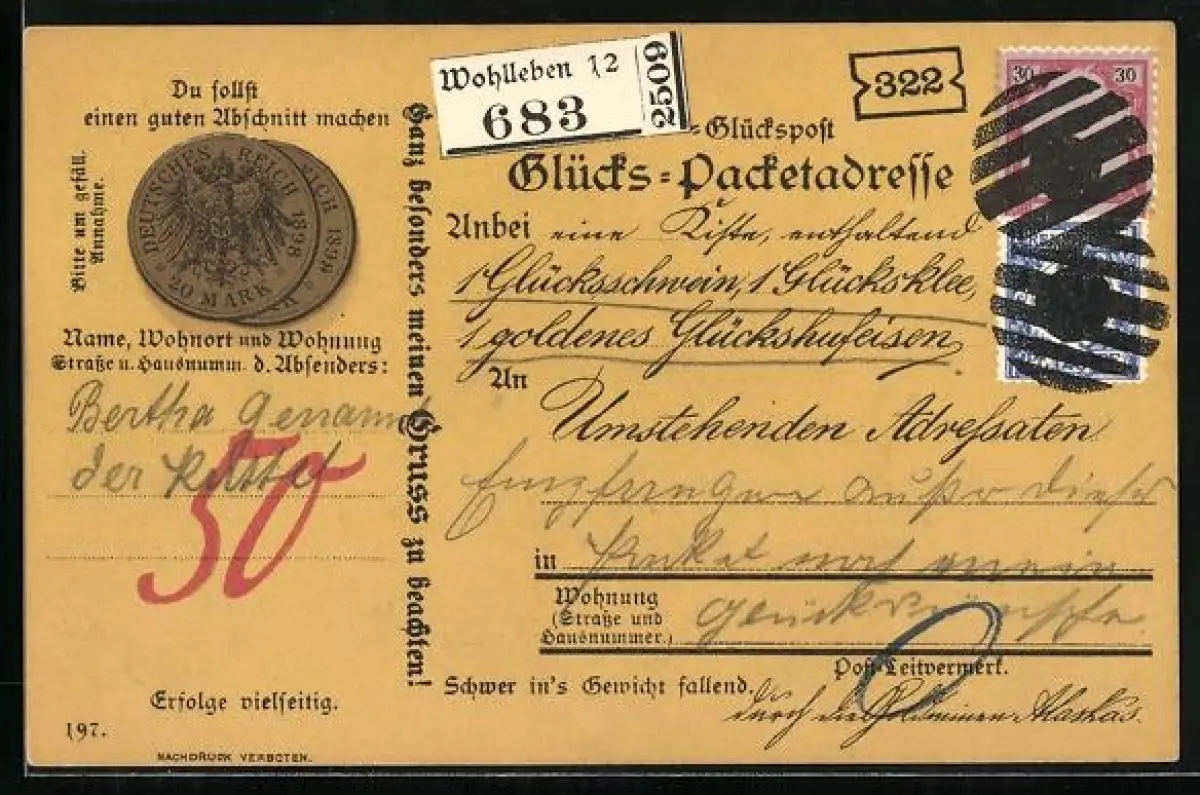 Du sollst
einen guten Abschnitt machen
Bitte um gefäll.
Annahme.
DEUTSCHES REICH 1898
20 MARK
EICH 1898
M
Name, Wohnort und Wohnung
Straße u. Hausnumm. d. Absenders:
Bertha Genannt
der
50
Erfolge vielseitig.
197.
NACHDRUCK VERBOTEN.
Ganz besonders meinen Gruss zu beachten!
Wohlleben 12
683
2509
322
30 30
=Glückspost
Glücks=Packetadresse
Anbei eine Kiste, enthaltend
1 Glücksschwein, 1 Glücksklee,
1 goldenes Glückshufeisen.
An
Umstehenden Adressaten
außer dieser
in Paket noch
Wohnung
(Straße und
Hausnummer.)
Post-Leitvermerk.
Schwer in's Gewicht fallend.
durch die Goldminen Alaskas.